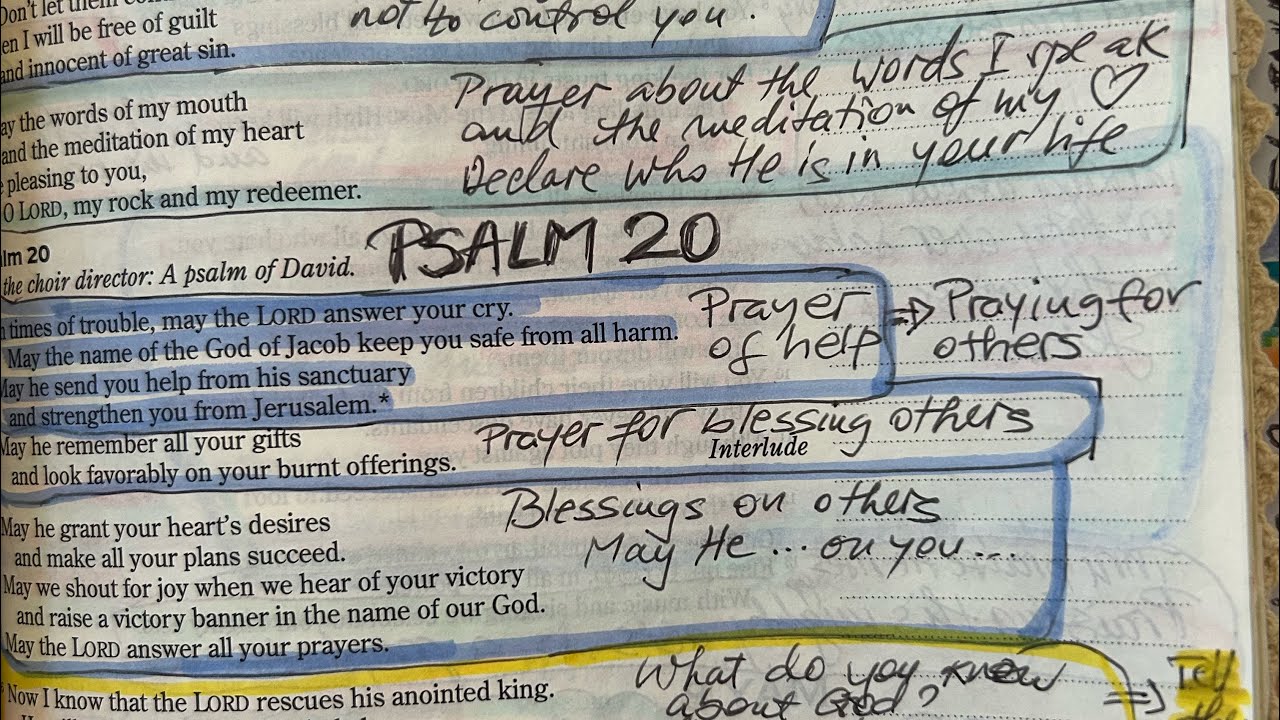 Don't let them
not to control you.
en I will be free of guilt
and innocent of great sin.
ay the words of my mouth
and the meditation of my heart
pleasing to you,
O LORD, my rock and my redeemer.
Prayer about the words I speak
and the meditation of my ♡
Declare who He is in your life
lm 20
PSALM 20
the choir director: A psalm of David.
times of trouble, may the LORD answer your cry.
May the name of the God of Jacob keep you safe from all harm.
May he send you help from his sanctuary
and strengthen you from Jerusalem.*
Prayer
of help
⇒ Praying for
others
May he remember all your gifts
and look favorably on your burnt offerings.
Prayer for blessing others
Interlude
May he grant your heart's desires
and make all your plans succeed.
May we shout for joy when we hear of your victory
and raise a victory banner in the name of our God.
May the LORD answer all your prayers.
Blessings on others
May He ... on you ...
Now I know that the LORD rescues his anointed king.
What do you know
about God?
⇒ Tell